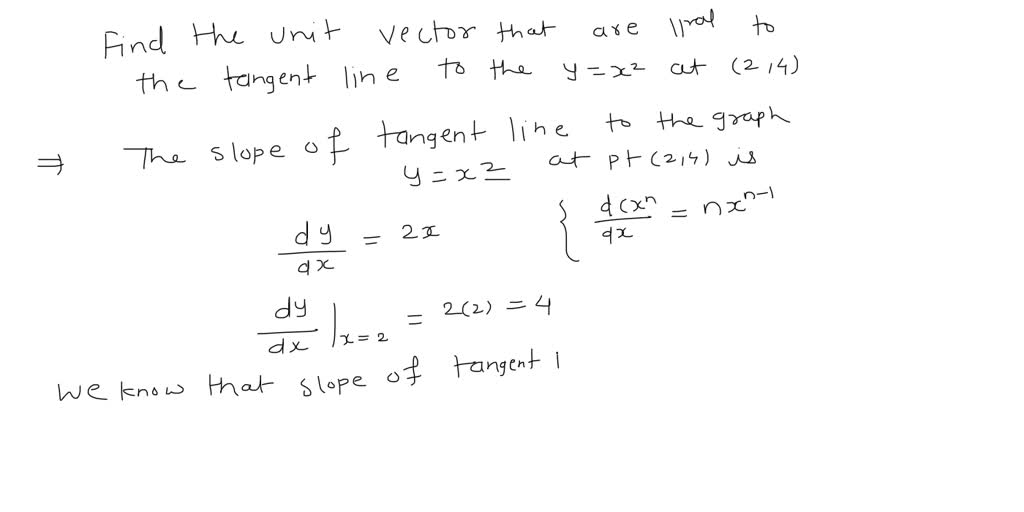 Find the unit vector that are llral to
the tangent line to the y = x² at (2,4)
⇒ The slope of tangent line to the graph
y = x² at pt (2,4) is
dy/dx = 2x { d(xⁿ/dx = nxⁿ⁻¹
dy/dx |x=2 = 2(2) = 4
We know that slope of tangent l